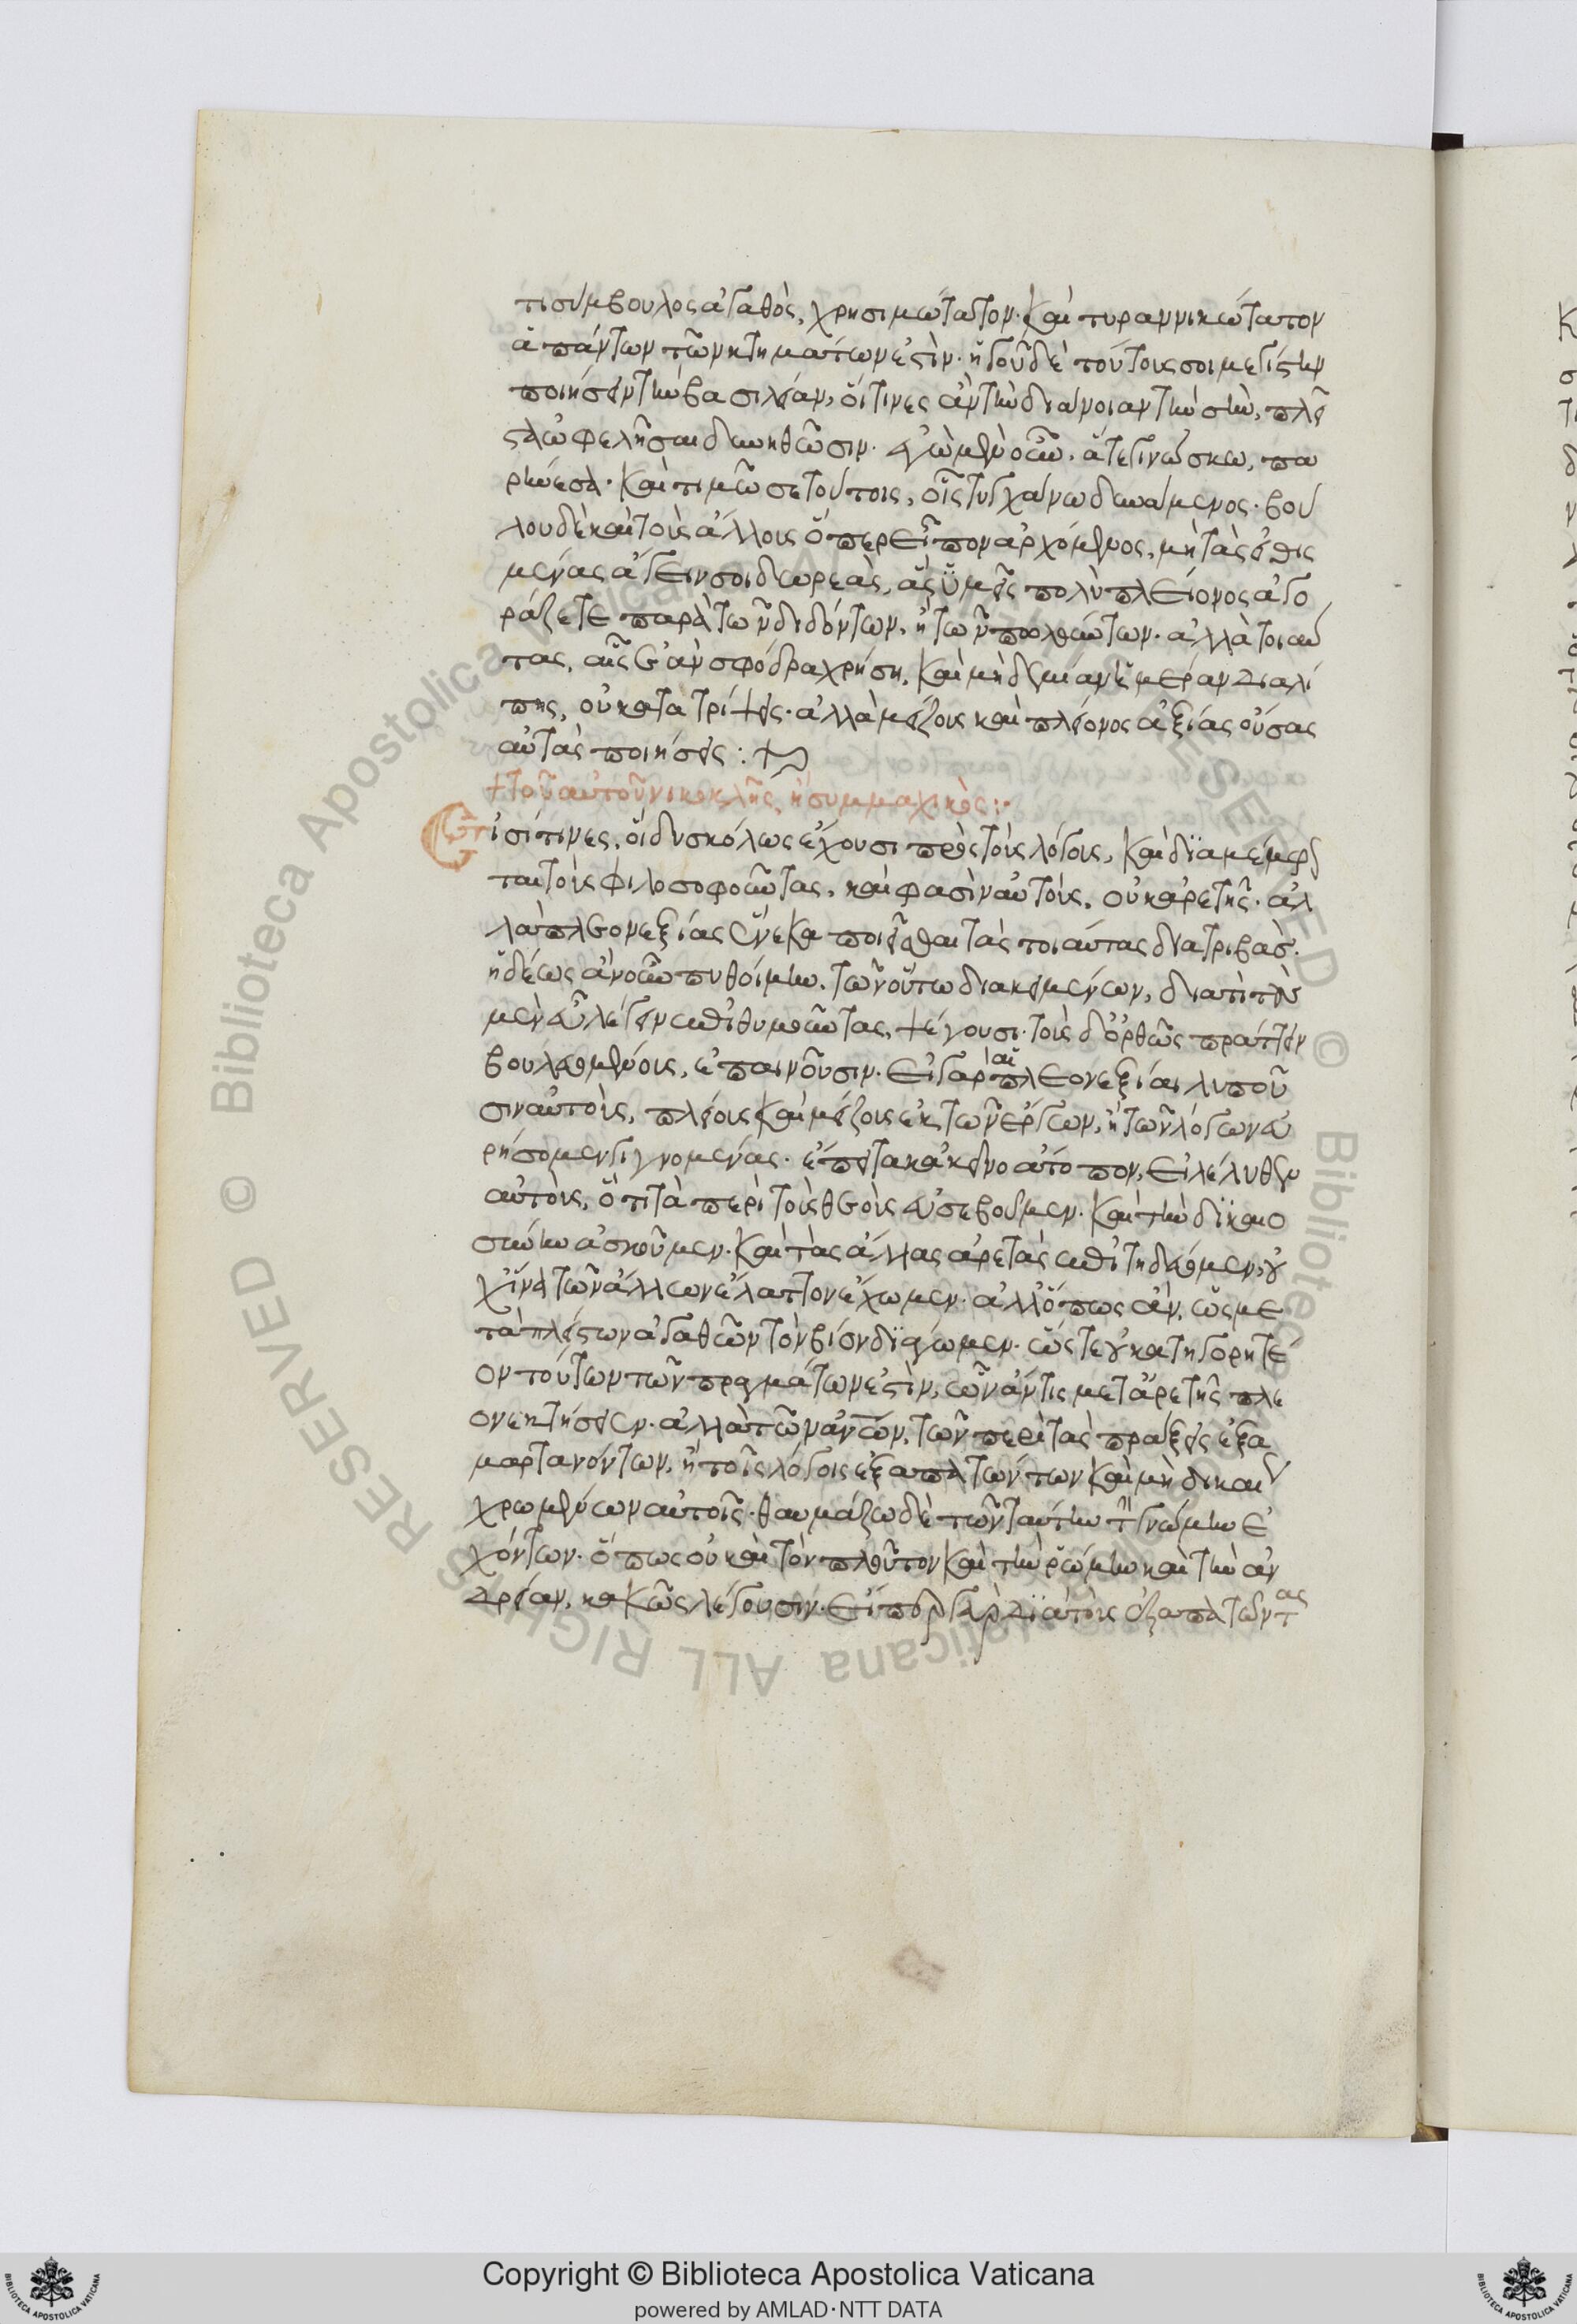 τι σύμβουλος ἀγαθὸς, χρησιμώτατον· καὶ τυραννικώτατον
ἁπάντων τῶν κτημάτων ἐστὶν· ἡγοῦ δὲ τούτους σοι μεγίστην
ποιήσειν τὴν βασιλείαν, οἵτινες ἂν τὴν διάνοιαν τὴν σὴν, πλεῖ
στα ὠφελῆσαι δυνηθῶσιν· ἐγὼ μὲν οὖν, ἅ τε γινώσκω, πα
ρήνεσα· καὶ τιμῶ σε τούτοις, οἷς τυγχάνω δυνάμενος· βού
λου δὲ καὶ τοὺς ἄλλους ὅπερ εἶπον ἀρχόμενος, μὴ τὰς εἰθις
μένας ἄγειν σοι δωρεὰς, ἃς ὑμεῖς πολὺ πλείονος ἀγο
ράζετε παρὰ τῶν διδόντων, ἢ τῶν πωλούντων· ἀλλὰ τοιαύ
τας, αἷς κἂν σφόδρα χρήση, καὶ μηδεμίαν ἡμέραν διαλί
πης, οὐ κατατρίψεις· ἀλλὰ μείζους καὶ πλείονος ἀξίας οὔσας
αὐτὰς ποιήσεις :
+ τοῦ αὐτοῦ νικοκλῆς, ἢ συμμαχικὸς :·
Εἰσί τινες, οἳ δυσκόλως ἔχουσι πρὸς τοὺς λόγους, καὶ διαμέμφον
ται τοὺς φιλοσοφοῦντας, καὶ φασὶν αὐτοὺς, οὐκ ἀρετῆς· ἀλ
λὰ πλεονεξίας ἕνεκα ποιεῖσθαι τὰς τοιαύτας διατριβάς·
ἡδέως ἂν οὖν πυθοίμην, τῶν οὕτω διακειμένων, διατί τοὺς
μὲν εὖ λέγειν ἐπιθυμοῦντας, ψέγουσι· τοὺς δ' ὀρθῶς πράττειν
βουλομένους, ἐπαινοῦσιν· εἰ γὰρ αἱ πλεονεξίαι λυποῦ
σιν αὐτοὺς, πλείους καὶ μείζους ἐκ τῶν ἔργων, ἢ τῶν λόγων εὑ
ρήσομεν γιγνομένας· ἔπειτα κἀκεῖνο ἄτοπον, εἰ λέληθεν
αὐτοὺς, ὅτι τὰ περὶ τοὺς θεοὺς εὐσεβοῦμεν· καὶ τὴν δικαιο
σύνην ἀσκοῦμεν· καὶ τὰς ἄλλας ἀρετὰς ἐπιτηδεύομεν, οὐ
χ ἵνα τῶν ἄλλων ἔλαττον ἔχωμεν· ἀλλ' ὅπως ἂν, ὡς με
τὰ πλείστων ἀγαθῶν τὸν βίον διάγωμεν· ὥστε οὐ κατηγορητέ
ον τούτων τῶν πραγμάτων ἐστὶν, ὧν ἄν τις μετ' ἀρετῆς πλε
ονεκτήσειεν· ἀλλὰ τῶν ἀνων, τῶν περὶ τὰς πράξεις ἐξα
μαρτανόντων, ἢ τοῖς λόγοις ἐξαπατώντων καὶ μὴ δικαίως
χρωμένων αὐτοῖς· θαυμάζω δὲ τῶν ταύτην τὴν γνώμην ἐ
χόντων· ὅπως οὐ καὶ τὸν πλοῦτον καὶ τὴν ῥώμην καὶ τὴν ἀν
δρείαν, κακῶς λέγουσιν· εἴπερ γὰρ διὰ τοὺς ἐξαπατῶντας
Copyright © Biblioteca Apostolica Vaticana
powered by AMLAD·NTT DATA
© Biblioteca Apostolica Vaticana ALL RIGHTS RESERVED